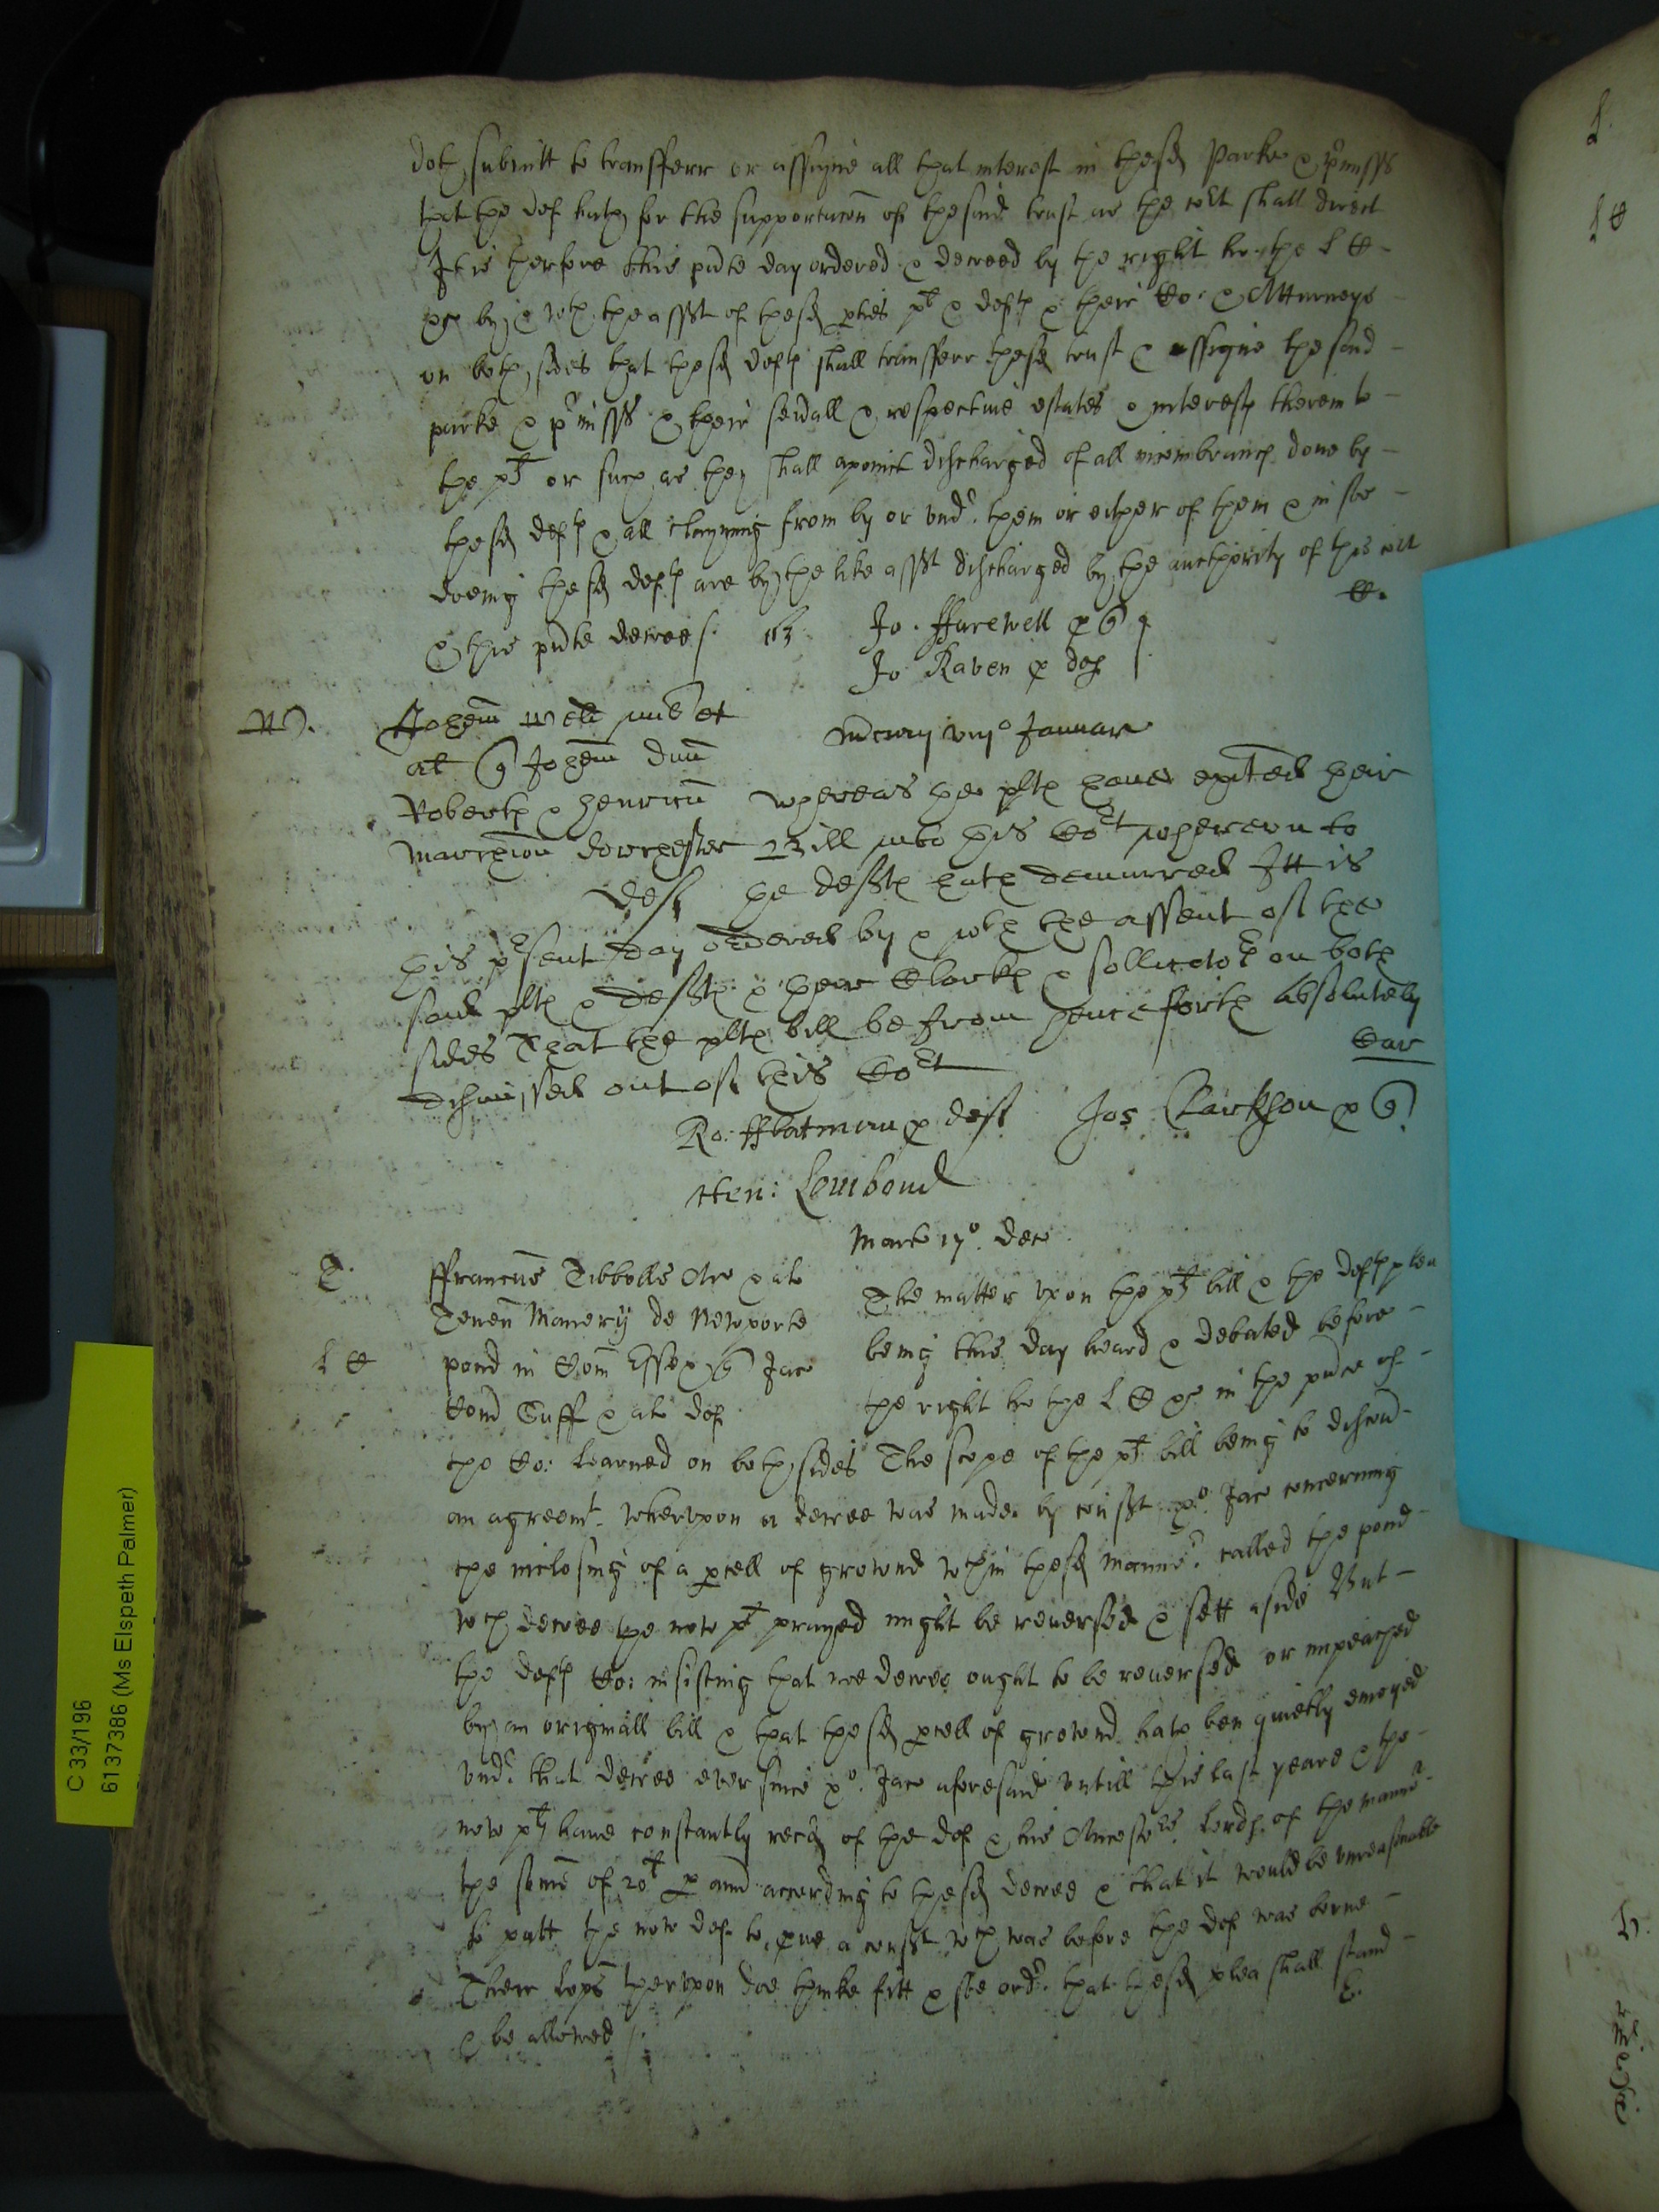 doth submitt to transferr or assigne all that interest in the sd Parke & pmisss
that the def hath for the supportacon of the said trust as the cort shall direct
It is therfore this pnte day ordered & decreed by the right ho: the L C
&c by & wth the asst of the sd pties plt & defts & their Co: & Atturneys
on both sides that the sd defts shall transferr the sd trust & assigne the said
parke & pmisss & their seuall & respective estates & interests therein to
the plts or such as they shall apoint discharged of all incombrancs done by
the sd defts & all clayming from by or vndr them or either of them & in soe
doeing the sd defts are by the like asst discharged by the aucthority of this cort
C.
& this pnte decree
Jo. Farewell p q
Jo Raven p def
W.
Johem Well mil et
al q Johem Dnu
Roberts & Henricu
Marchion Dorchester
Def
Mercury viijo Januar
Whereas the plts haue exhited their
Bill into this Cort wherevnto
the defts hath demurred Itt is
this psent day ordered by & wth the assent of the
said plts & defts & their Clarks & sollicitors on both
sides That the plts bill be from henceforth absolutely
dismissed out of this Cort
Car
Ro: ffatman p def Jos Clarkson p q
Hen: Louibond
Marts 17o Dec
T.
ffrancus Tibbolls Are & als
Tenen Manerij de Newporte
pond in Com Essex q Jaco
Comd Suff & als def
L C
The matter vpon the plts bill & the defts plea
being this day heard & debated before
the right ho the L C &c in the pnce of
the Co: learned on both sides The scope of the plts bill being to discou
an agreemt wherupon a decree was made by consst xo Jac concerning
the inclosing of a pcell of grownd wthin the sd mannor called the pond
wch decree the now plt prayed might be reuersed & sett aside But
the defts Co: insisting that noe decree ought to be reuersed or impeached
by an originall bill & that the sd pcell of grownd hath ben quietly enioyed
vndr that decree ever since xo Jac aforesaid vntill this last yeare & the
now plts haue constantly recd of the def & his Ancestors Lords of the mannor
the some of 20l p ann according to the sd decree & that it would be vnreasonable
to putt the now def to pue a consst wch was before the def was borne
Their Lops therupon doe thinke fitt & soe order that the sd plea shall stand
E.
& be allowed
C 33/196
6137386 (Ms Elspeth Palmer)